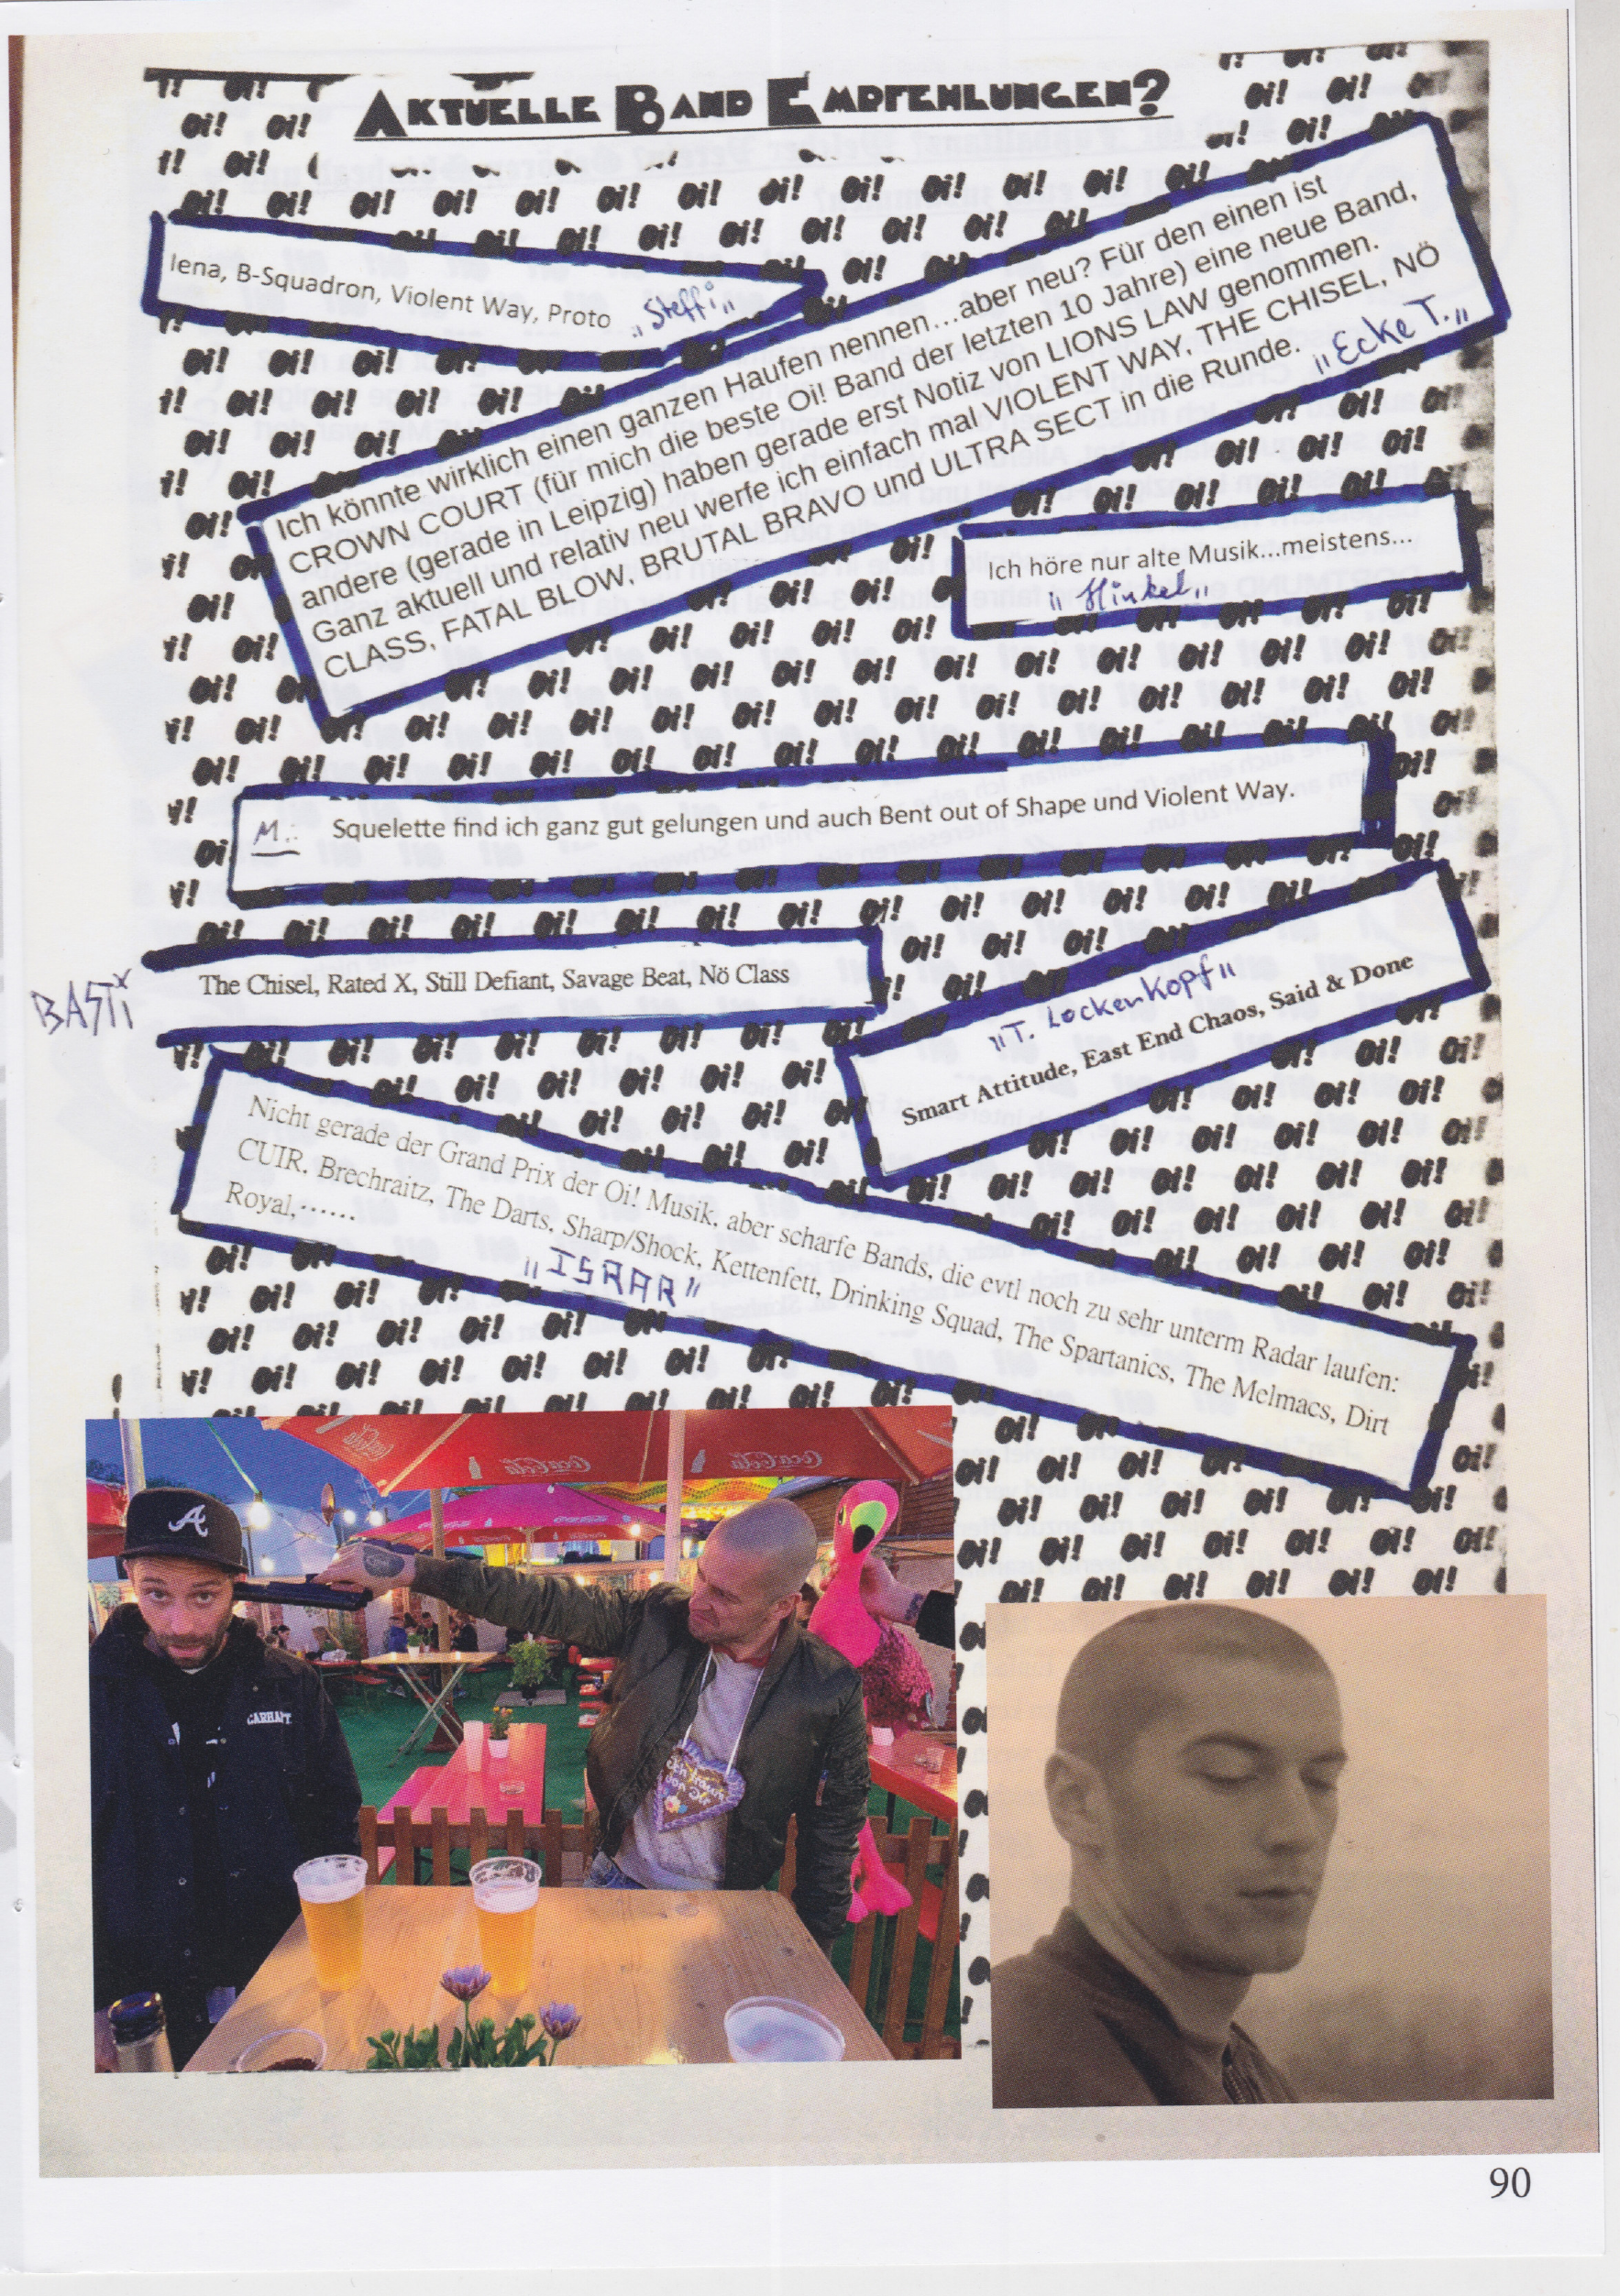 AKTUELLE BAND EMPFEHLUNGEN?
Iena, B-Squadron, Violent Way, Proto
„Steffi„
Ich könnte wirklich einen ganzen Haufen nennen…aber neu? Für den einen ist
CROWN COURT (für mich die beste Oi! Band der letzten 10 Jahre) eine neue Band,
andere (gerade in Leipzig) haben gerade erst Notiz von LIONS LAW genommen.
Ganz aktuell und relativ neu werfe ich einfach mal VIOLENT WAY, THE CHISEL, NÖ
CLASS, FATAL BLOW, BRUTAL BRAVO und ULTRA SECT in die Runde.
„Ecke T.„
Ich höre nur alte Musik...meistens...
„Hinkel„
M.: Squelette find ich ganz gut gelungen und auch Bent out of Shape und Violent Way.
BASTi
The Chisel, Rated X, Still Defiant, Savage Beat, Nö Class
„T. Lockenkopf„
Smart Attitude, East End Chaos, Said & Done
Nicht gerade der Grand Prix der Oi! Musik, aber scharfe Bands, die evtl noch zu sehr unterm Radar laufen:
CUIR, Brechraitz, The Darts, Sharp/Shock, Kettenfett, Drinking Squad, The Spartanics, The Melmacs, Dirt
Royal,……
„ISRAR"
Oi! Oi! Oi!
Coca-Cola
Coca-Cola
Coca-Cola
A
CARHARTT
Ich träum
von Dir
90